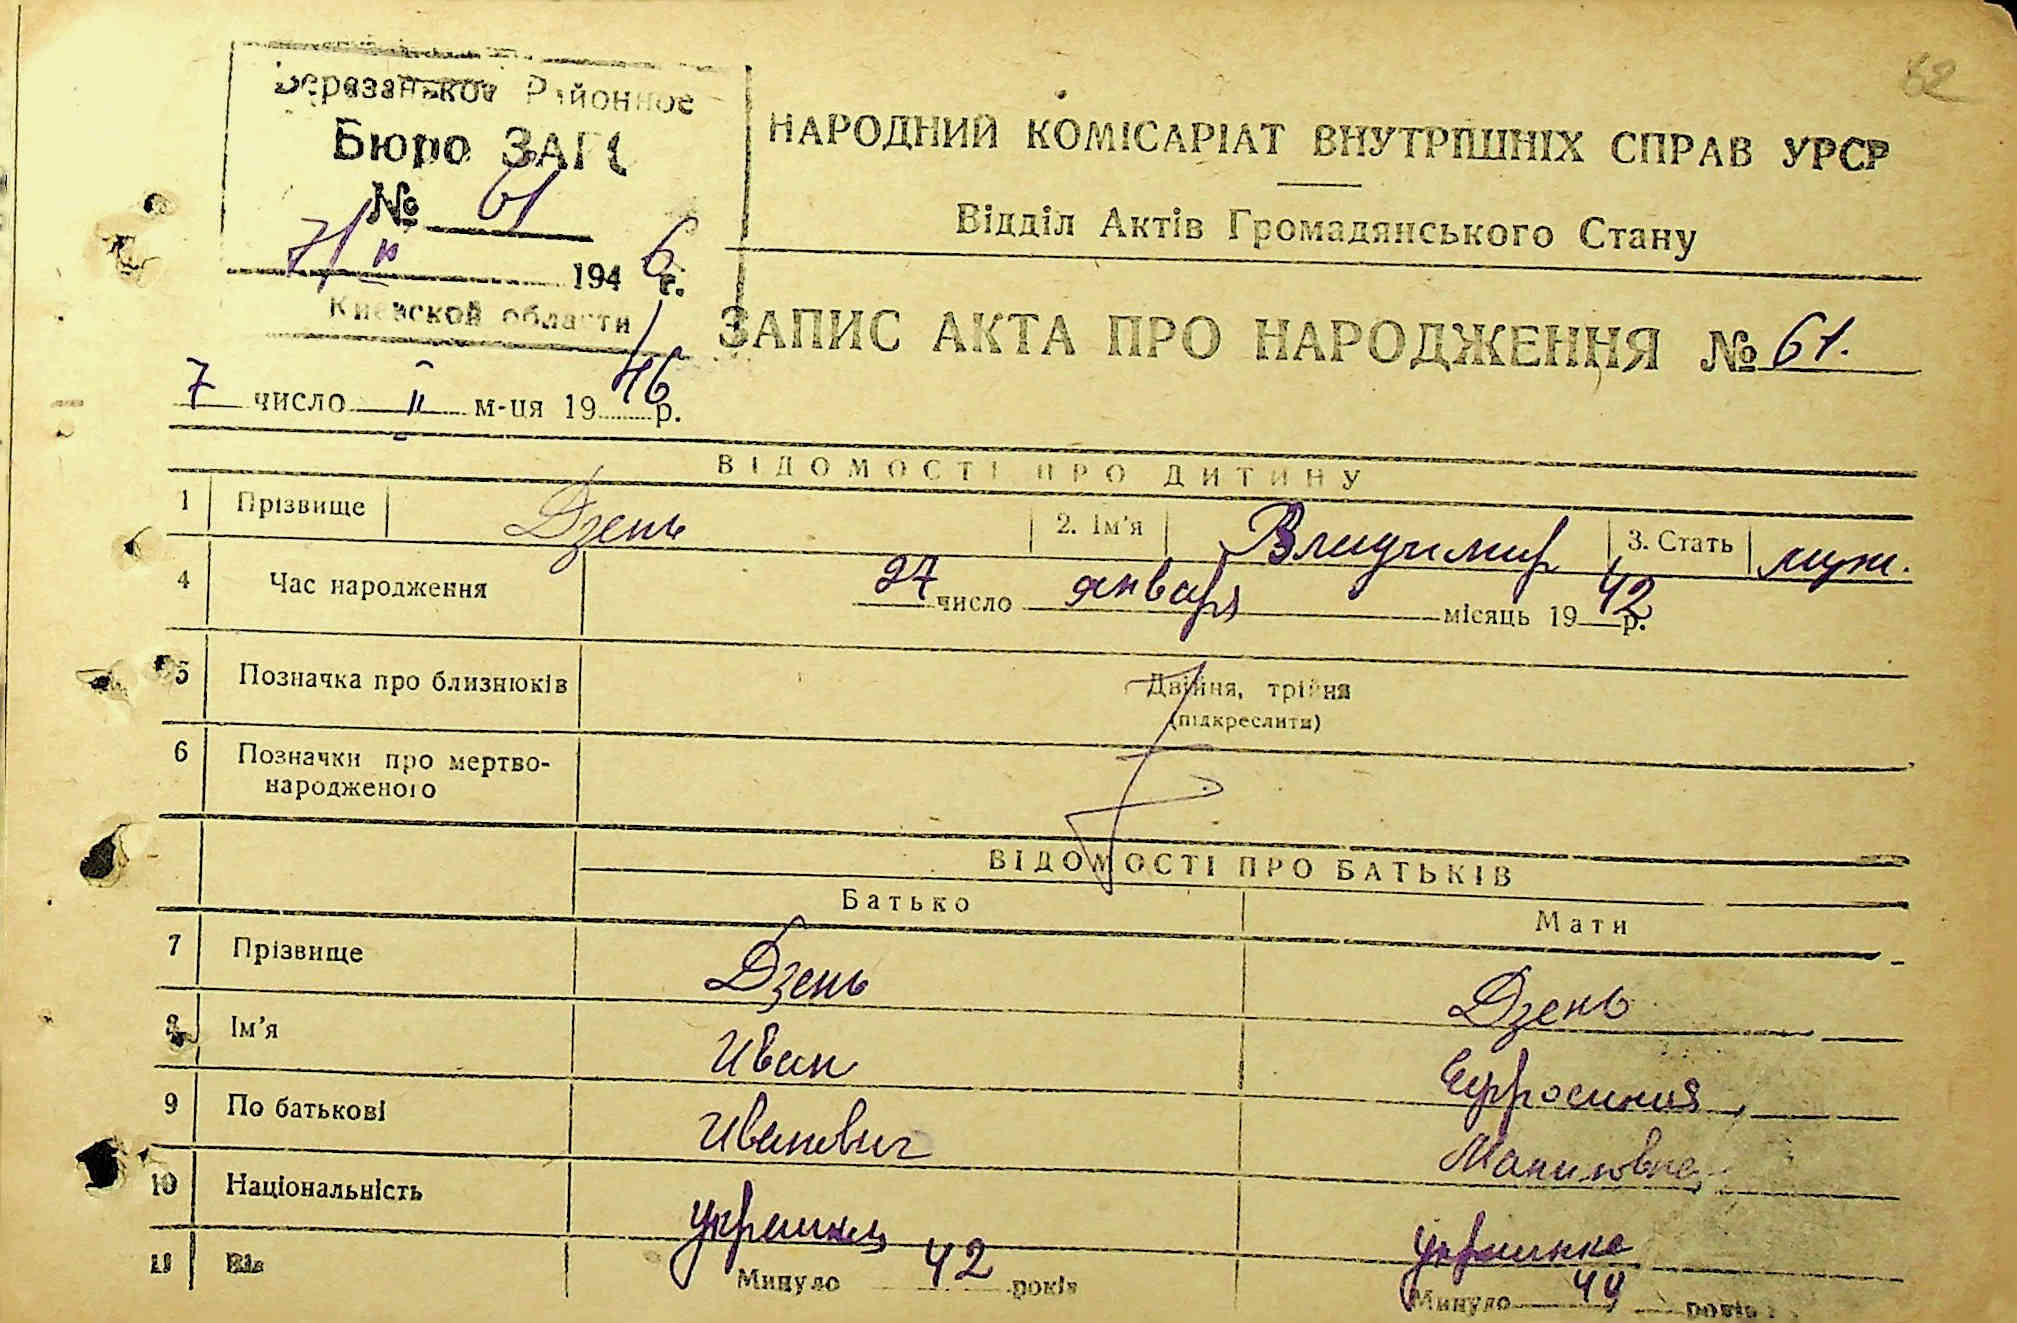 82
Березанское Районное
Бюро ЗАГС
№ 61
7/II 1946 г.
Киевской области
НАРОДНИЙ КОМІСАРІАТ ВНУТРІШНІХ СПРАВ УРСР
Відділ Актів Громадянського Стану
ЗАПИС АКТА ПРО НАРОДЖЕННЯ № 61.
7 число II м-ця 1946 р.
ВІДОМОСТІ ПРО ДИТИНУ
1 Прізвище Дзень 2. Ім'я Владимир 3. Стать муж.
4 Час народження 27 число января місяць 1942 р.
5 Позначка про близнюків Двійня, трійня
(підкреслити)
6 Позначки про мертво-
народженого
ВІДОМОСТІ ПРО БАТЬКІВ
Батько Мати
7 Прізвище Дзень Дзень
8 Ім'я Иван Ефросиния
9 По батькові Иванович
10 Національність украинец украинка
11 Вік Минуло 42 років Минуло 44 років